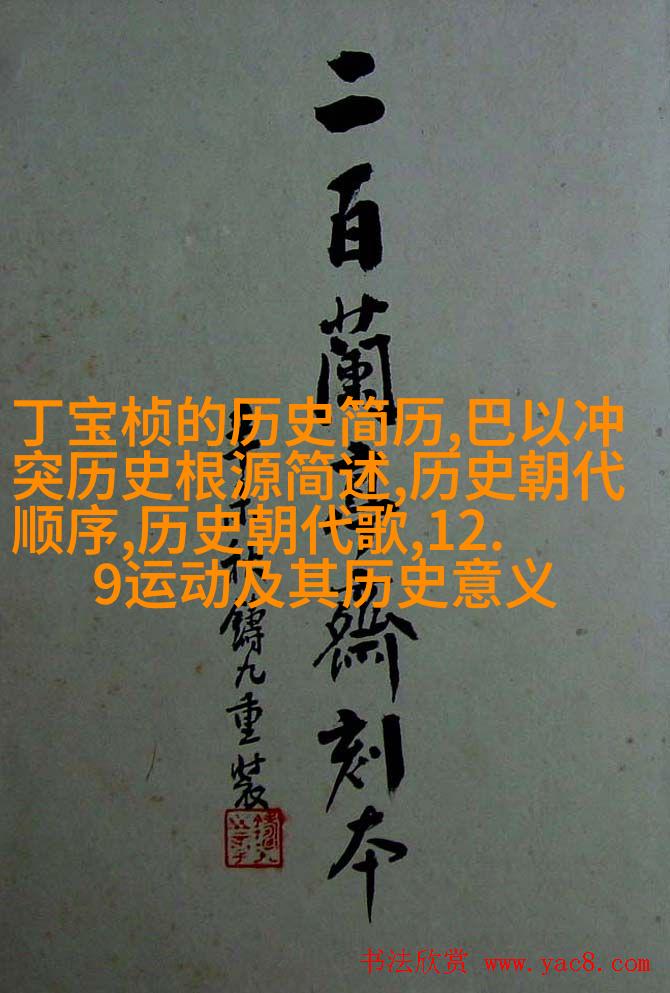 二百蘭亭齋刻本
鑄九重裝
丁宝桢的历史简历,巴以冲
突历史根源简述,历史朝代
顺序,历史朝代歌,12.
9运动及其历史意义
书法欣赏 www.yac8.com